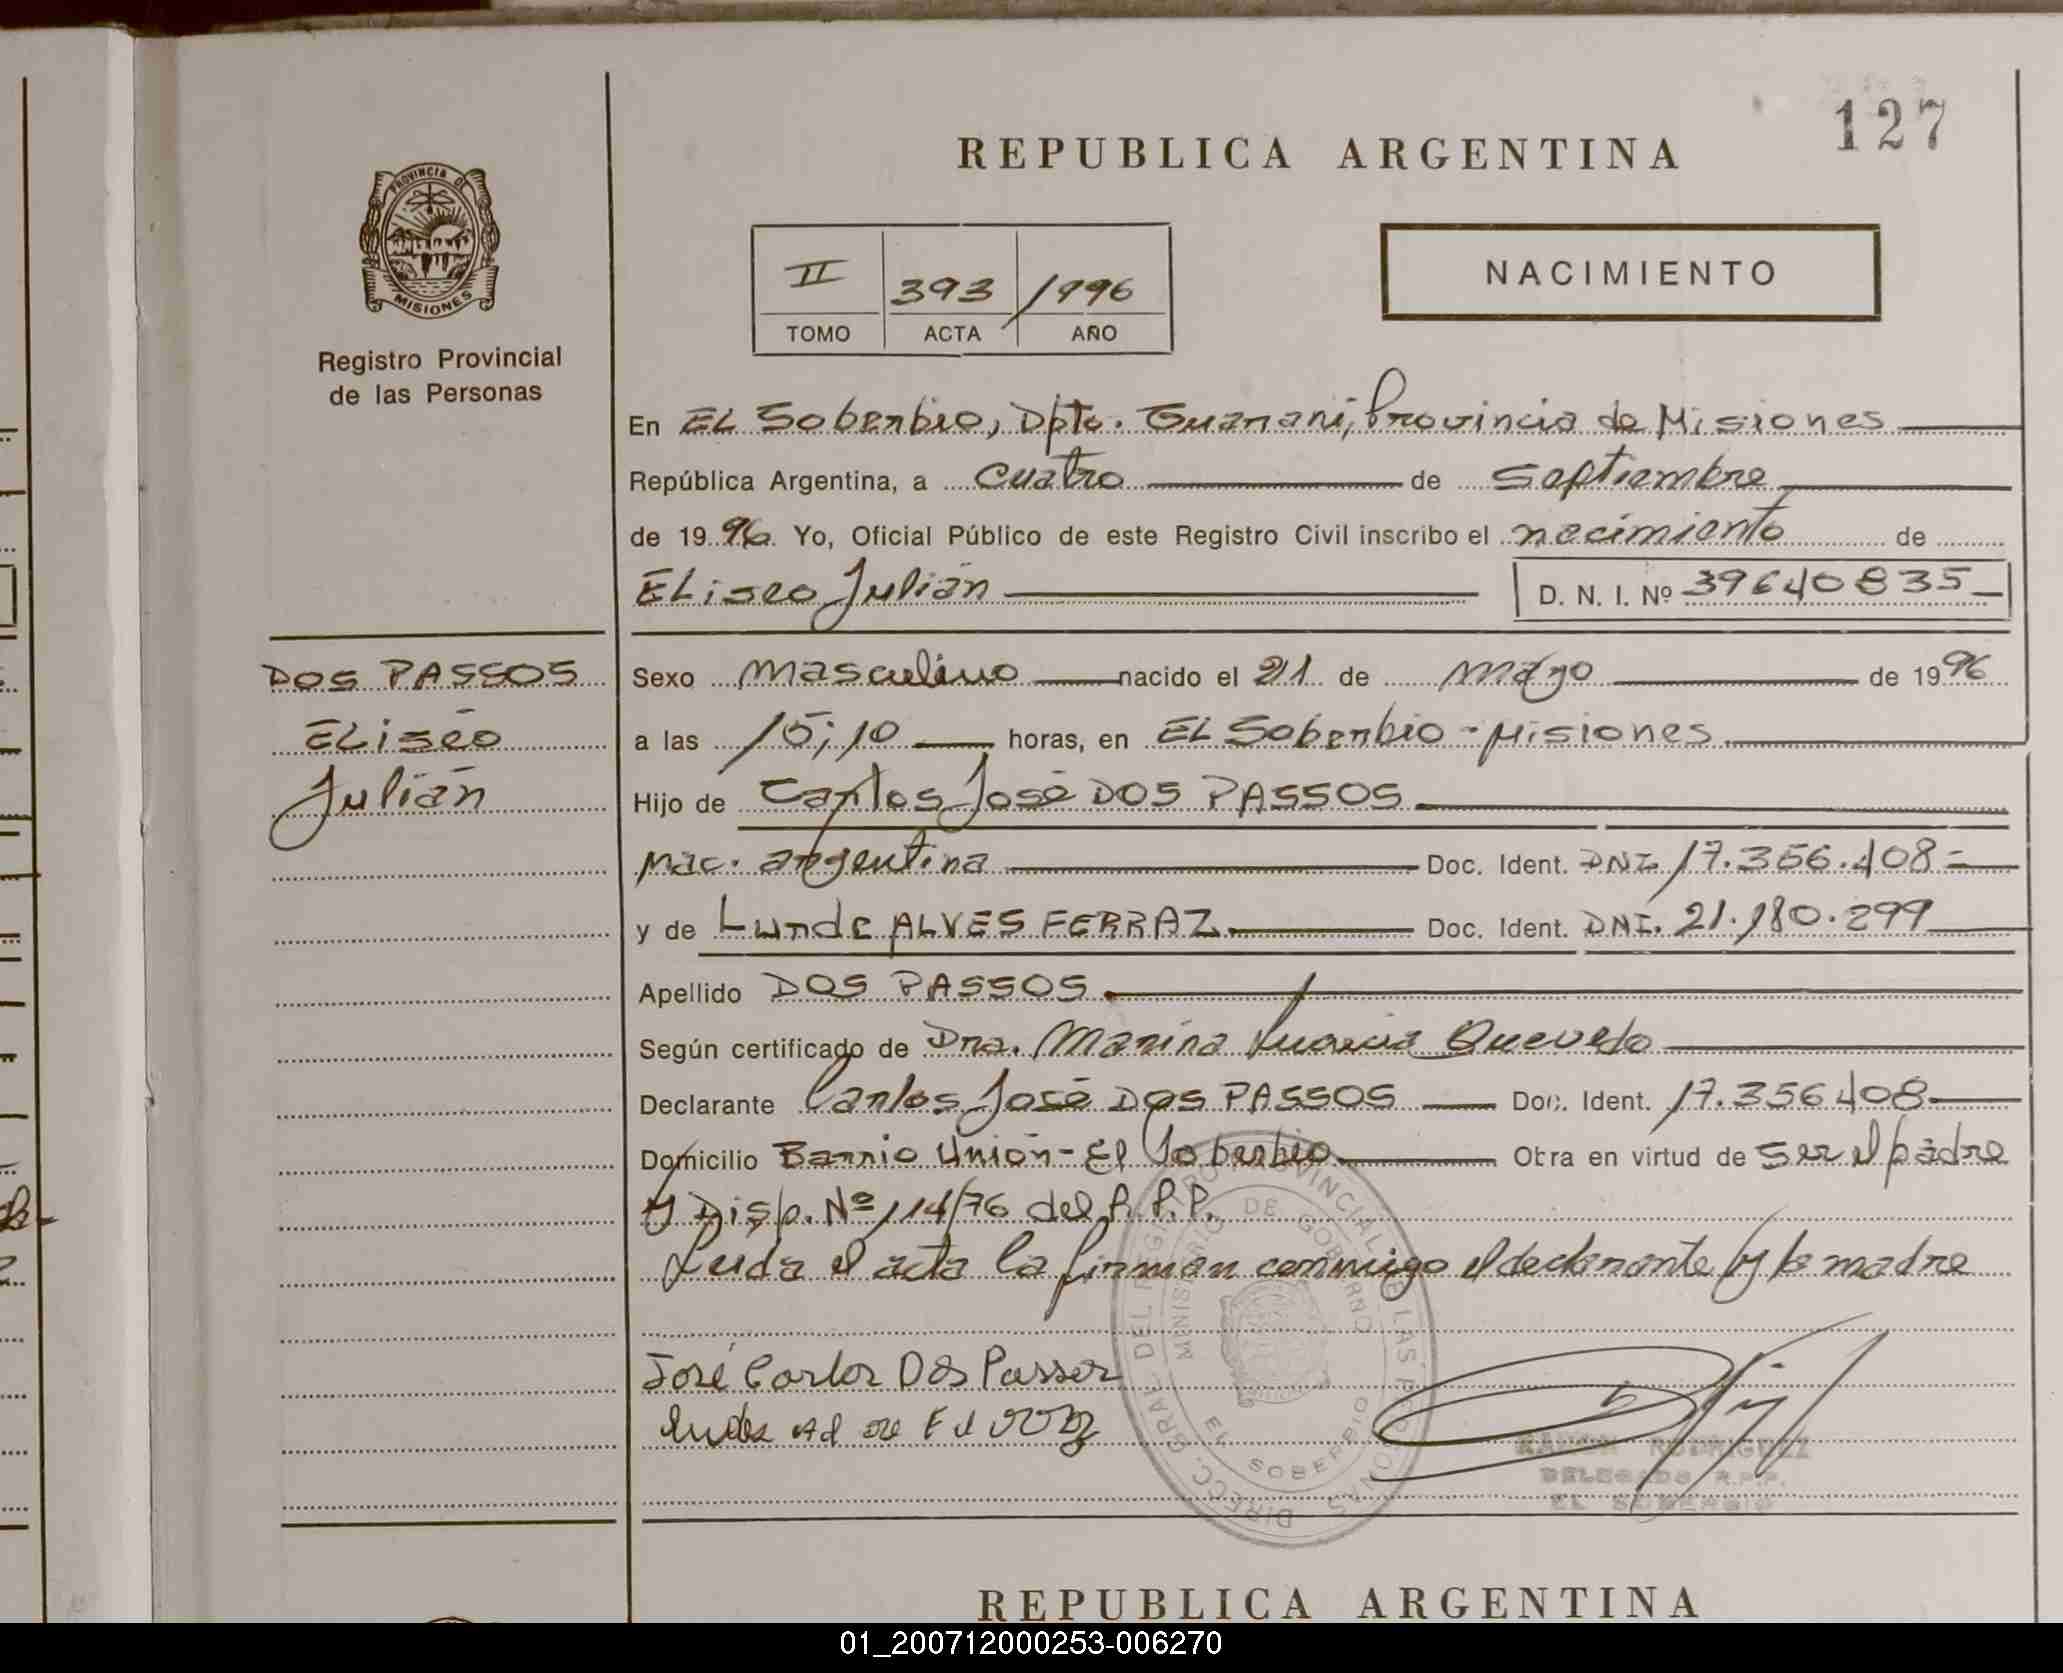 127
REPUBLICA ARGENTINA
PROVINCIA DE
MISIONES
Registro Provincial
de las Personas
II 393 1996
TOMO ACTA AÑO
NACIMIENTO
En EL Soberbio, Dpto. Guaraní, Provincia de Misiones
República Argentina, a cuatro de septiembre
de 1996 Yo, Oficial Público de este Registro Civil inscribo el nacimiento de
ELiseo Julián D. N. I. Nº 39640835
DOS PASSOS
ELiseo
Julián
Sexo masculino nacido el 21 de mayo de 1996
a las 15;10 horas, en EL Soberbio - Misiones
Hijo de Carlos José DOS PASSOS
Nac. argentina Doc. Ident. DNI. 17.356.408
y de Lurde ALVES FERRAZ Doc. Ident. DNI. 21.180.299
Apellido DOS PASSOS
Según certificado de Dra. Marina Quevedo
Declarante Carlos José DOS PASSOS Doc. Ident. 17.356408
Domicilio Barrio Unión - El Soberbio Obra en virtud de ser el padre
y Disp. Nº 114/76 del R.P.P.
Leida el acta la firman conmigo el declarante y la madre
José Carlos Dos Passos
DIRECC. GRAL. DEL REGISTRO PROVINCIAL DE LAS PERSONAS
MINISTERIO DE GOBIERNO
EL SOBERBIO
RAMON RODRIGUEZ
DELEGADO R.P.P.
EL SOBERBIO
REPUBLICA ARGENTINA
01_200712000253-006270